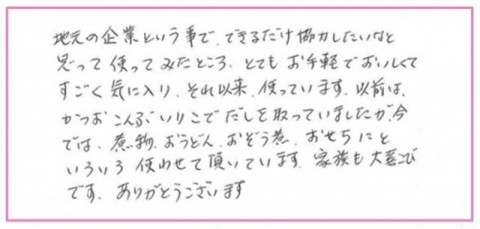 地元の企業という事で、できるだけ協力したいなと
思って使ってみたところ、とてもお手軽でおいしくて
すごく気に入り、それ以来、使っています。以前は、
かつおこんぶいりこでだしを取っていましたが、今
では、煮物、おうどん、おぞう煮、おせちにと
いろいろ使わせて頂いています。家族も大喜び
です。ありがとうございます